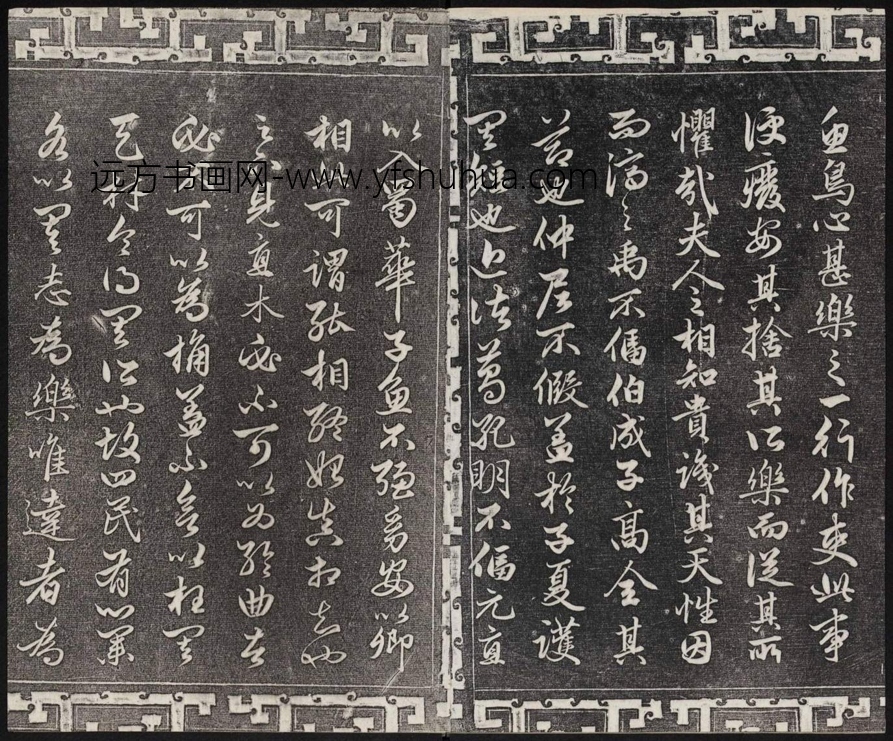 魚鳥心甚樂之一行作吏此事
便廢安其捨其所樂而從其所
懼哉夫人之相知貴識其天性因
而濟之禹不偪伯成子高全其
節也仲尼不假蓋於子夏護
其短也近諸葛孔明不偪元直
以入蜀華子魚不強幼安以卿
相此可謂能相終始真相知也
足下見直木必不可以為輪曲者
不可以為桷蓋不欲以枉其
天才令得其所也故四民有業
各以其志為樂唯達者為
远方书画网-www.yfshuhua.com